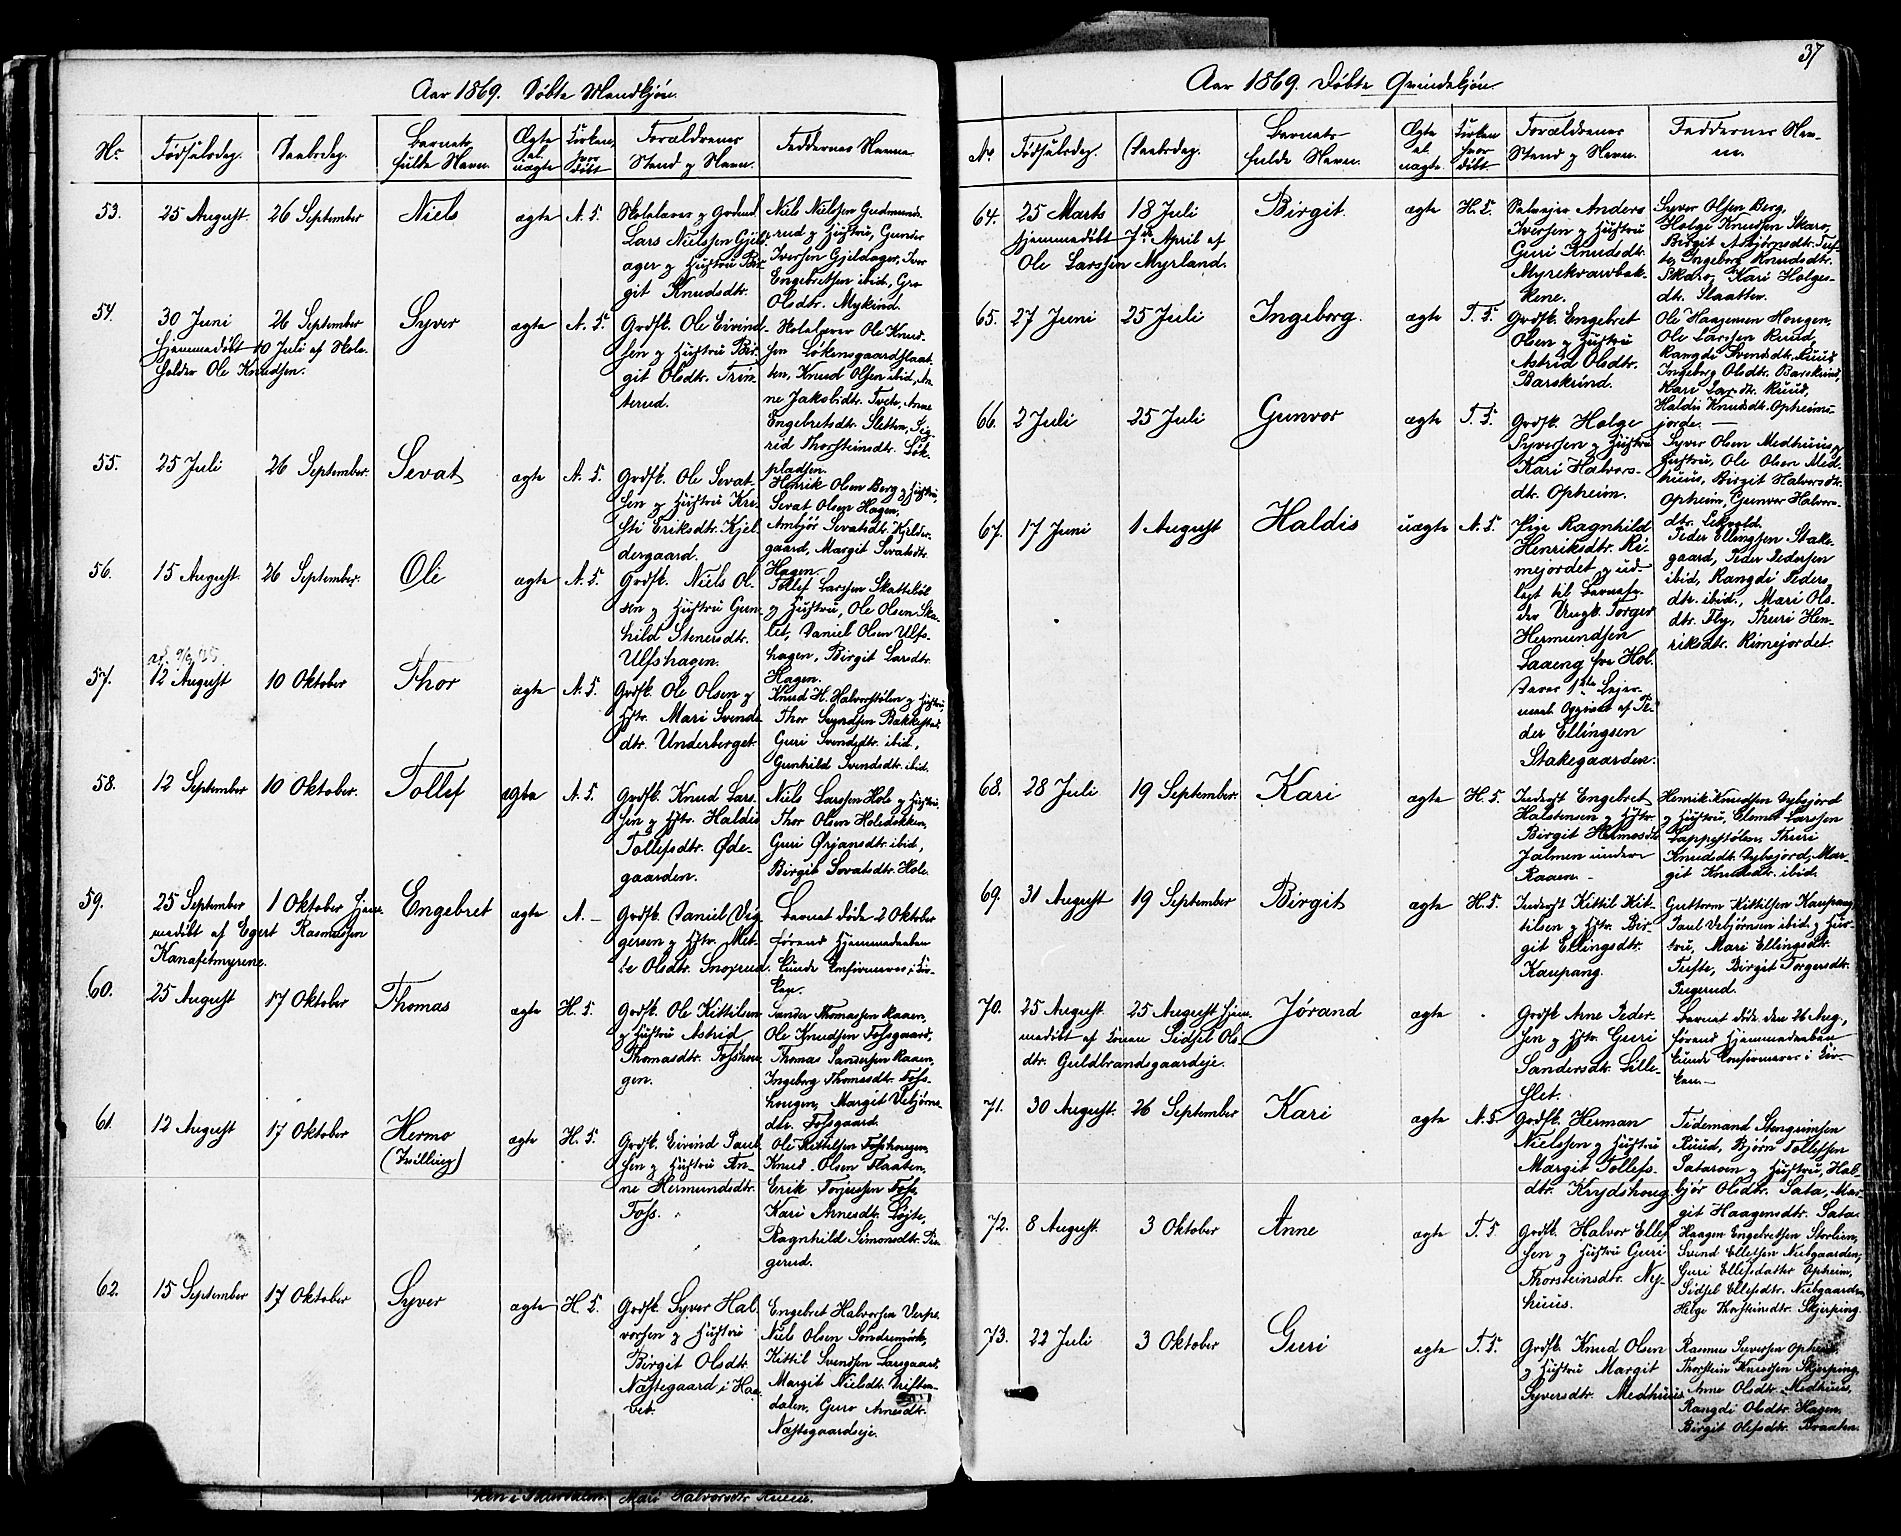 Aar 1869. Døbte Mandkjøn.
Nr Fødselsdag. Daabsdag. Barnets fulde Navn. Ægte el. uægte Kirken, hvor døbt Forældrenes Stand og Navn. Faddernes Navne
53. 25 August. 26 September Niels ægte A. K.
Lars Nielsen Gjeld-
ager og Hustru Bir-
git Knudsdtr.
Niels Nielsen Gudmunds-
rud og Hustru, Gunder
Iversen Gjeldager, Iver
Engebretsen ibid, Gro
Olsdtr. Mykind.
54. 30 Juni 26 September Syver ægte A. K.
Hjemmedøbt 10 Juli af Skole-
holder Ole Knudsen.
Grdsk. Ole Eivind-
sen og Hustru Bir-
git Olsdtr. Trin-
terud.
Skolelærer Ole Knud-
sen Løkensgaardslaat-
ten, Knud Olsen ibid, An-
ne Jakobsdtr. Tveto, Anne
Engebretsdtr. Sletten, Sig-
rid Thorsteinsdtr. Løk-
pladsen.
55. 25 Juli 26 September. Sevat ægte A. K.
Grdsk. Ole Sevat-
sen og Hustru Kri-
sti Eriksdtr. Kjel-
dergaard.
Henrik Olsen Berg og Hustru,
Sevat Olsen Hagen,
Ambjør Sevatsdtr. Kjelder-
gaard, Margit Sevatsdtr.
Hagen.
56. 15 August. 26 September. Ole ægte A. K.
Grdsk. Niels Ol-
sen og Hustru Gun-
hild Stenersdtr.
Ulfshagen.
Tollef Larssen Skattebøl
og Hustru, Ole Olsen Ska-
let, Daniel Olsen Ulfs-
hagen, Birgit Larsdtr.
Hagen.
57. 12 August 10 Oktober Thor ægte A. K.
Grdsk. Ole Olsen og
Hstr. Mari Svends-
dtr. Underberget.
Knud H. Halvorstølen og Hustru,
Thor Svendsen Bakkestad,
Guri Svendsdtr. ibid,
Gunhild Svendsdtr. ibid.
58. 12 September 10 Oktober. Tollef ægte A. K.
Grdsk. Knud Lars-
sen og Hstr. Haldis
Tollefsdtr. Øde-
gaarden.
Niels Larssen Hole og Hustru,
Thor Olsen Holedokken,
Guri Ørjansdtr. ibid,
Birgit Sevatsdtr. Hole.
59. 25 September 1 Oktober Hjem- Engebret ægte A. —
medøbt af Egert Rasmussen
Kanafetmyrene.
Grdsk. Daniel Vig-
gersen og Hstr. Met-
te Olsdtr. Snoxrud.
Barnet døde 2 Oktober
førend Hjemmedaaben
kunde konfirmeres i Kir-
ken.
60. 25 August 17 Oktober Thomas ægte H. K.
Grdsk. Ole Kittilsen
og Hustru Astrid
Thomasdtr. Fosshou-
gen.
Sander Thomassen Raaen,
Ole Knudsen Fossgaard,
Thomas Sandersen Raaen,
Ingeborg Thomasdtr. Foss-
hougen, Margit Vebjørns-
dtr. Fossgaard.
61. 12 August 17 Oktober Hermo ægte H. K.
(Tvilling)
Grdsk. Eivind Paul-
sen og Hustru An-
ne Hermundsdtr.
Foss.
Ole Kittilsen Fosshougen,
Knud Olsen Flaaten,
Erik Torjussen Foss,
Kari Arnesdtr. Løjte,
Ragnhild Simonsdtr. Tin-
gerud.
62. 15 September 17 Oktober Syver ægte H. K.
Grdsk. Syver Hal-
vorsen og Hustru
Birgit Olsdtr.
Næstegaard i Haa-
vet.
Engebret Halvorsen Verpe,
Niels Olsen Søndremørk,
Kittil Svendsen Larsgaard,
Margit Nielsdtr. Driften-
dalen, Guro Arnesdtr.
Næstegaardseje.
Mari Halvorsdtr. Ruud.
37
Aar 1869. Døbte Qvindekjøn.
Nr Fødselsdag. Daabsdag. Barnets fulde Navn. Ægte el. uægte. Kirken hvor døbt. Forældrenes Stand og Navn. Faddernes Navne.
64. 25 Marts 18 Juli Birgit. ægte H. K.
Hjemmedøbt 7de April af
Ole Larssen Myrland.
Selvejer Anders
Iversen og Hustru
Guri Knudsdtr.
Myrekravbak-
kene.
Syver Olsen Berg,
Holge Knudsen Skaro,
Birgit Asbjørnsdtr. Tuf-
te, Ingeborg Knudsdtr.
Skaro, Kari Holges-
dtr. Slaatten.
65. 27 Juni 25 Juli Ingeborg. ægte T. K.
Grdsk. Engebret
Olsen og Hustru
Astrid Olsdtr.
Barskrind.
Ole Haagensen Hougen,
Ole Larssen Ruud,
Rangdi Svendsdtr. Ruud
Ingeborg Olsdtr. Barskrind,
Kari Larsdtr. Ruud,
66. 2 Juli 25 Juli Gunvor ægte T. K.
Grdsk. Holge
Syversen og Hustru
Kari Halvors-
dtr. Opheim.
Haldis Knudsdtr. Opheims-
jorde. —
Syver Olsen Medhuus og
Hustru, Ole Olsen Med-
huus, Birgit Halvorsdtr.
Opheim, Gunvor Halvors-
dtr. Lekvold.
67. 17 Juni 1 August Haldis uægte A. K.
Pige Ragnhild
Henriksdtr. Ri-
mejordet og ud-
lagt til Barnefa-
der Ungk. Torger
Hermundsen
Laaeng fra Hol.
Deres 1ste Lejer-
maal. Opgivet af Pe-
der Ellingsen
Stakegaarden.
Peder Ellingsen Stake-
gaard, Peder Pedersen
ibid, Rangdi Peders-
dtr. ibid., Mari Ols-
dtr. Fly, Thuri Hen-
riksdtr. Rimejordet.
68. 28 Juli 19 September. Kari ægte H. K.
Inderst Engebret
Halstensen og Hstr.
Birgit Hermosdtr.
Jalmen under
Raaen. -
Henrik Knudsen Dybsjord
og Hustru, Elmer Larssen
Lappestølen, Thuri
Knudsdtr. Dybsjord, Mar-
git Knudsdtr. ibid.
69. 31 August 19 September Birgit ægte H. K.
Inderst Kittil Kit-
tilsen og Hstr. Bir-
git Ellingsdtr.
Kaupang.
Guttorm Kittilsen Kaupang,
Paul Vebjørnsen ibid og Hus-
tru, Mari Ellingsdtr.
Tufte, Birgit Torgersdtr.
70. 25 August. 25 August Hjem- Jørand ægte
medøbt af Konen Sidsel Ols-
dtr. Guldbrandsgaardeje.
Grdsk Arne Peder-
sen og Hstr. Guri
Sandersdtr. Lille-
slet.
Barnet døde den 26 Aug.,
førend Hjemmedaaben
kunde konfirmeres i Kir-
ken. —
71. 30 August. 26 September Kari ægte A. K.
Grdsk. Herman
Nielssen og Hustru
Margit Tollefs-
dtr. Krydshoug.
Tidemand Stengrimsen
Ruud, Bjørn Tollefsen
Sataroen og Hustru, Hal-
bjør Olsdtr. Sata, Mar-
git Haagensdtr. Sata.
72. 8 August. 3 Oktober Anne ægte T. K.
Grdsk. Halvor Ellef-
sen og Hustru Guri
Thorsteinsdtr. Ny-
huus.
Haagen Engebretsen Storlien,
Svend Ellefsen Nubgaarden,
Guri Ellefsdatter Opheim,
Sidsel Ellefsdtr. Nubgaarden,
Helge Thorsteinsdtr. Skjerping.
73. 22 Juli 3 Oktober Guri ægte T. K.
Grdsk. Knud Olsen
og Hustru Margit
Syversdtr. Medhuus
Rasmus Siversen Opheim,
Thorstein Knudsen Skjerping,
Anne Olsdtr. Medhuus,
Rangdi Olsdtr. Hagen,
Birgit Olefsdtr. Braaten.